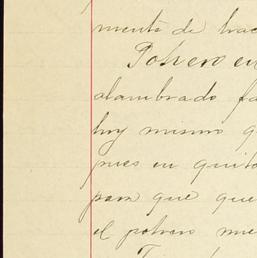 mento de hac
Potrero en
alambrado fa
hoy mismo q
pues en quito
para que que
el potrero me